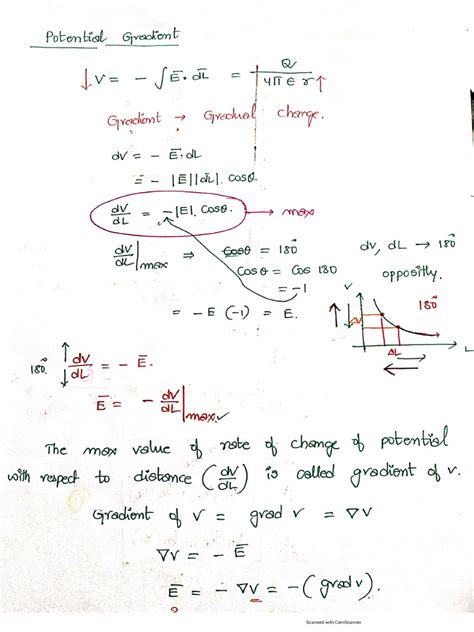 Potential Gradient
↓ V = - ∫ E̅ . dL̅ = Q / 4π ∈ r ↑
Gradient → Gradual change.
dV = - E̅ . dL
= - |E̅| |dL̅| . cosθ
dV/dL = - |E| . cosθ. → max
dV/dL |max ⇒ Cosθ = 180°
dV, dL → 180°
Cosθ = Cos 180
oppositly.
= -1
= - E (-1) = E.
V
180°
L
ΔL
180° ↑↓ dV/dL = - E̅.
E̅ = - dV/dL |max.
The max value of rate of change of potential
with respect to distance (dV/dL) is called gradient of V.
Gradient of V = grad V = ∇V
∇V = - E̅
E̅ = - ∇V = - (grad V).
?
Scanned with CamScanner